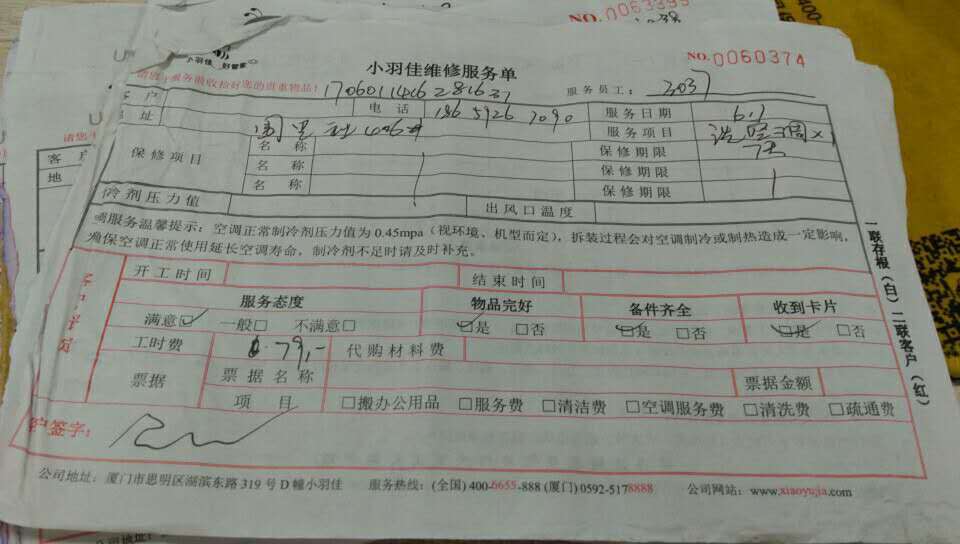 0063393
NO.
小羽佳 好管家
小羽佳维修服务单
NO. 0060374
服务员工: 3037
户 1706011446281637
电话 186 5926 7090 服务日期 6.1
址
服务项目
保修项目 名称 保修期限
名称 保修期限
名称 保修期限
冷剂压力值 出风口温度
服务温馨提示：空调正常制冷剂压力值为 0.45mpa（视环境、机型而定），拆装过程会对空调制冷或制热造成一定影响，
保空调正常使用延长空调寿命，制冷剂不足时请及时补充。
开工时间 结束时间
服务态度 物品完好 备件齐全 收到卡片
满意☑ 一般□ 不满意□ ☑是 □否 ☑是 □否 ☑是 □否
工时费 79,- 代购材料费
票据 票据名称 票据金额
项目 □搬办公用品 □服务费 □清洁费 □空调服务费 □清洗费 □疏通费
签字：
一联存根（白）二联客户（红）
公司地址：厦门市思明区湖滨东路 319 号 D 幢小羽佳 服务热线：(全国) 400-6655-888 (厦门) 0592-5178888 公司网站：www.xiaoyujia.com